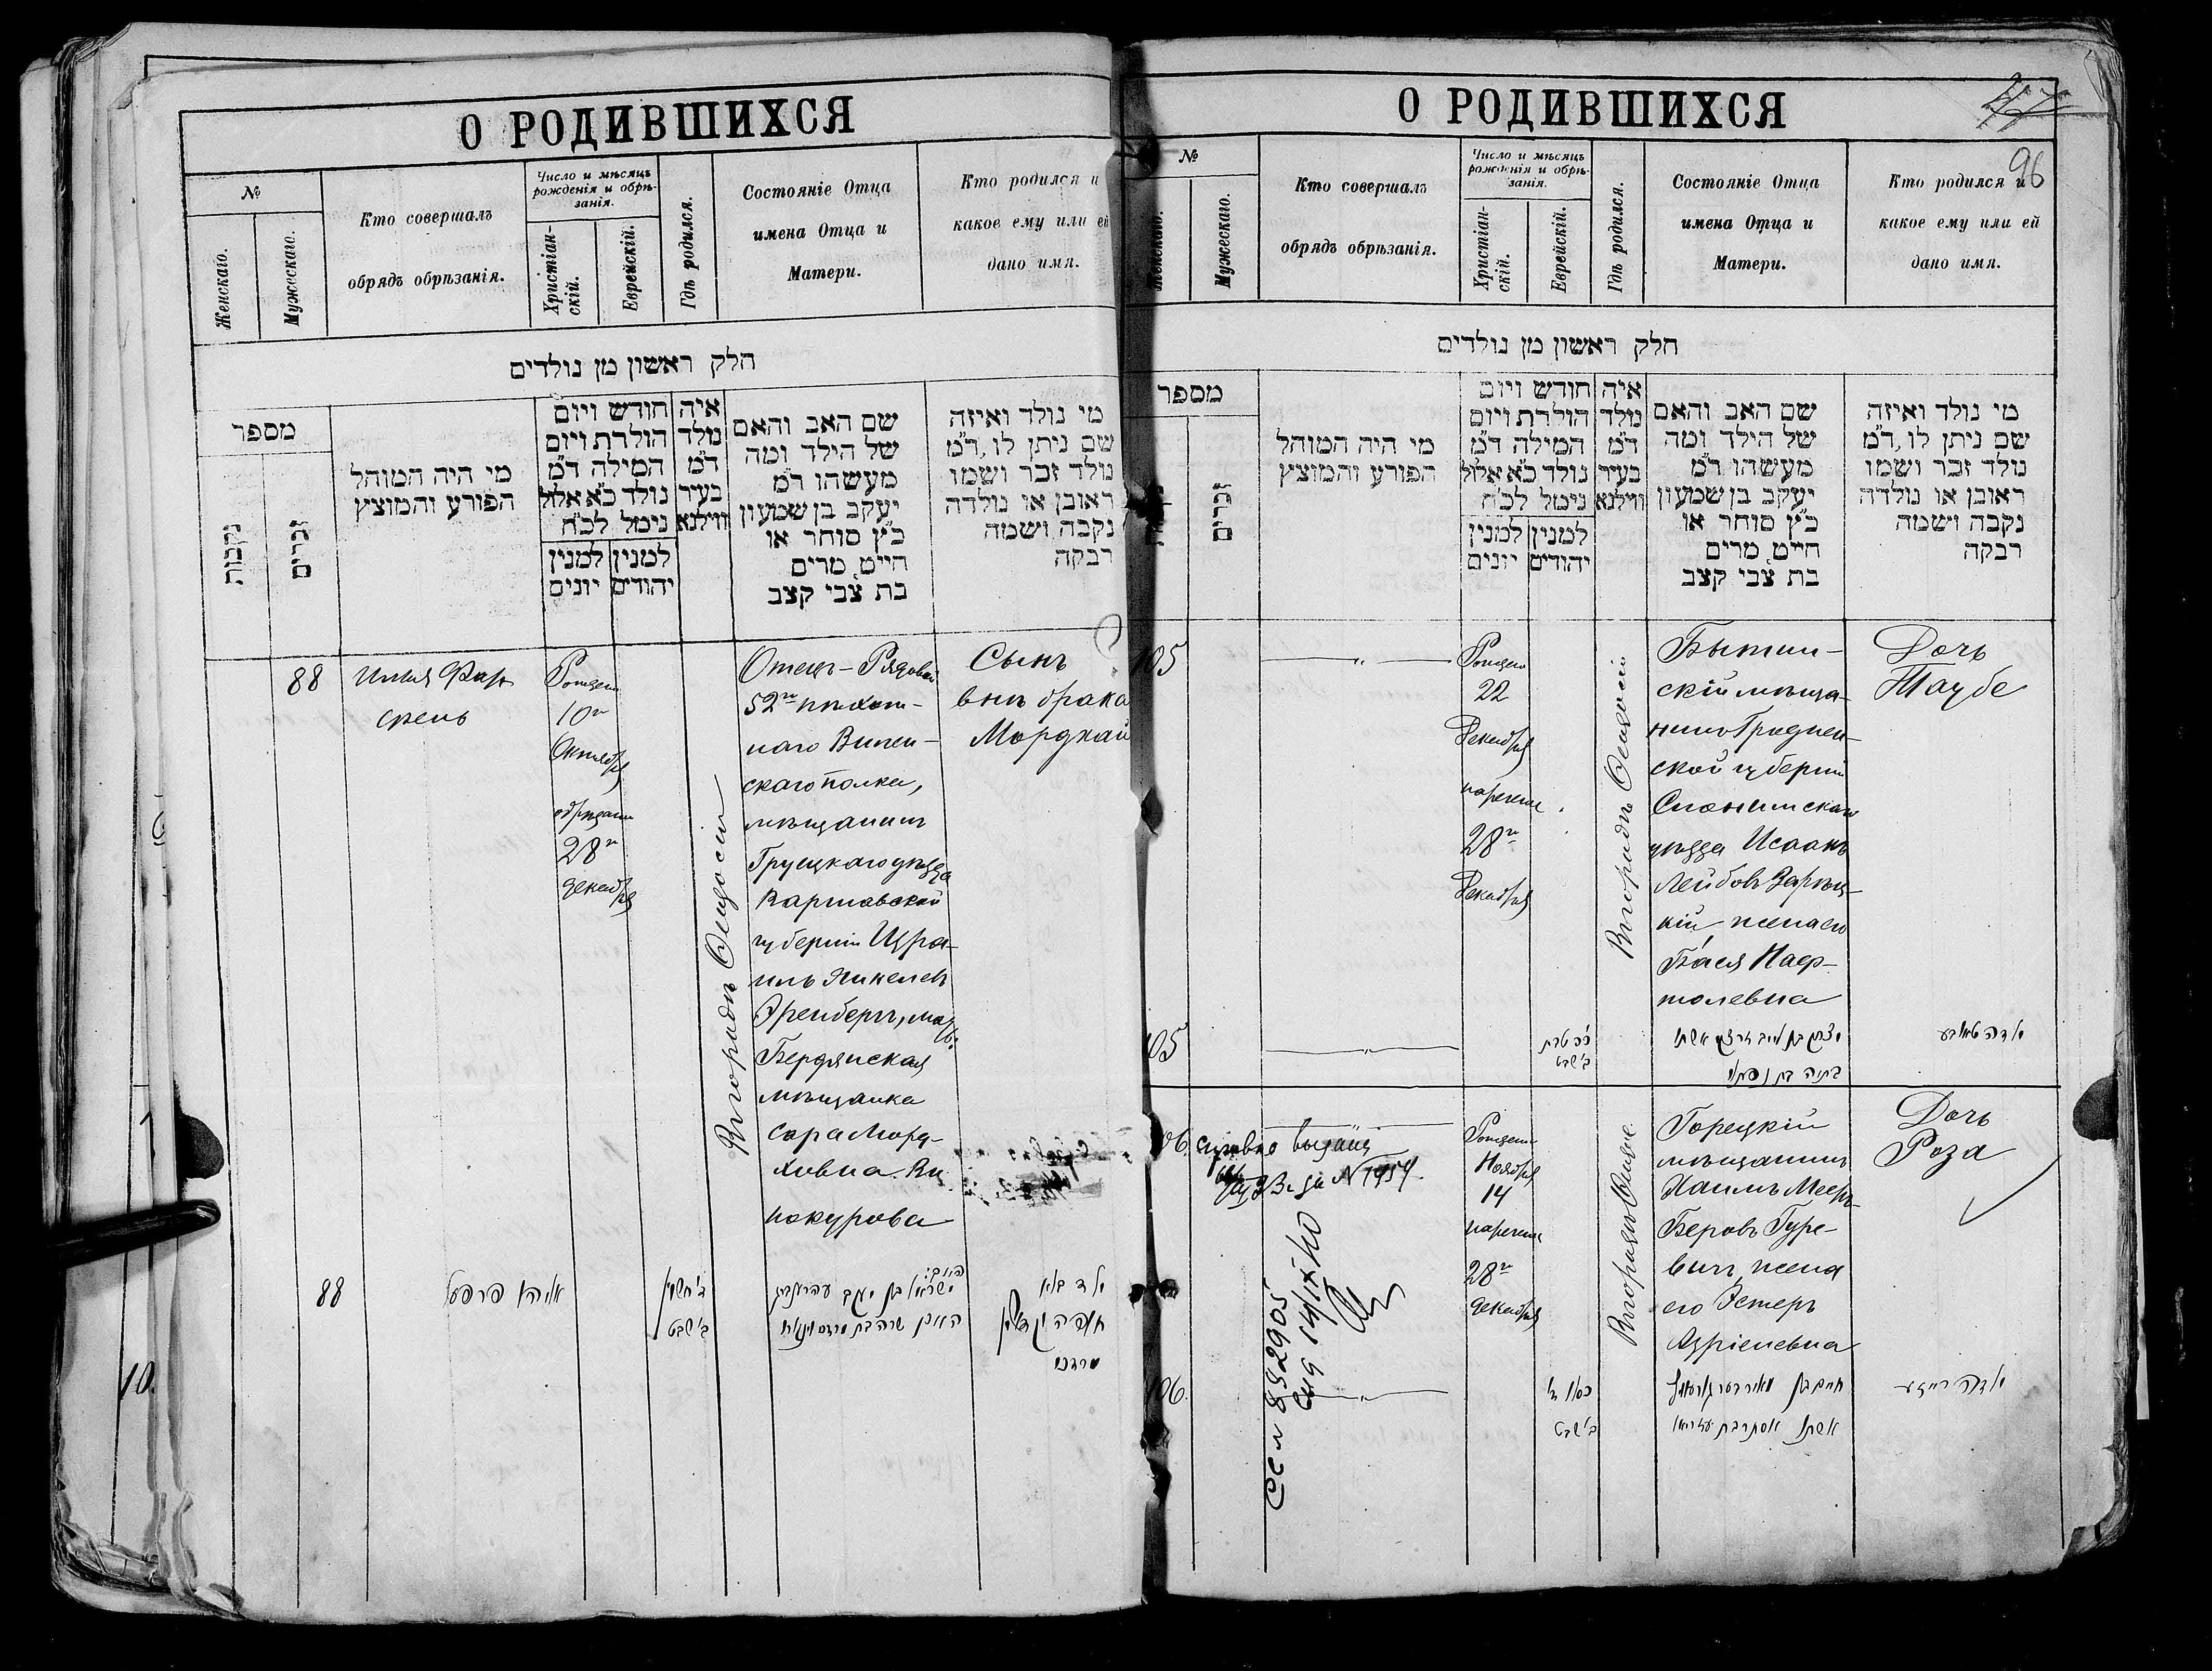 О РОДИВШИХСЯ
№
Женскаго.
Мужескаго.
Кто совершалъ
обрядъ обрѣзанія.
Число и мѣсяцъ
рожденія и обрѣ-
занія.
Христіан-
скій.
Еврейскій.
Гдѣ родился.
Состояніе Отца
имена Отца и
Матери.
Кто родился и
какое ему или ей
дано имя.
חלק ראשון מן נולדים
מספר
נקבות
זכרים
מי היה המוהל
הפורע והמוצץ
חודש ויום
הולדת ויום
המילה ד״מ
נולד כ״א אלול
נימל לכ״ח
למנין
יהודים
למנין
יונים
איה
נולד
ד״מ
בעיר
ווילנא
שם האב והאם
של הילד ומה
מעשהו ד״מ
יעקב בן שמעון
כ״ץ סוחר או
חייט מרים
בת צבי קצב
מי נולד ואיזה
שם ניתן לו, ד״מ
נולד זכר ושמו
ראובן או נולדה
נקבה ושמה
רבקה
88
Родился
10го
Октября
обрѣзанъ
28го
декабря
Въ городѣ Ѳеодосіи
Отецъ - Рядовой
52го пѣхот-
наго Вилен-
скаго полка,
мѣщанинъ
Груецкаго уѣзда
Варшавской
губерніи Изра-
иль Янкелев
Эренбергъ, мать
Бердянская
мѣщанка
Сара Морд-
ховна Ви
нокурова
Сынъ
внѣ брака
Мордхай
88
ב׳ שבט
מרדכי
О РОДИВШИХСЯ
96
№
Женскаго.
Мужескаго.
Кто совершалъ
обрядъ обрѣзанія.
Число и мѣсяцъ
рожденія и обрѣ-
занія.
Христіан-
скій.
Еврейскій.
Гдѣ родился.
Состояніе Отца
имена Отца и
Матери.
Кто родился и
какое ему или ей
дано имя.
חלק ראשון מן נולדים
מספר
זכרים
מי היה המוהל
הפורע והמוצץ
חודש ויום
הולדת ויום
המילה ד״מ
נולד כ״א אלול
נימל לכ״ח
למנין
יהודים
למנין
יונים
איה
נולד
ד״מ
בעיר
ווילנא
שם האב והאם
של הילד ומה
מעשהו ד״מ
יעקב בן שמעון
כ״ץ סוחר או
חייט מרים
בת צבי קצב
מי נולד ואיזה
שם ניתן לו, ד״מ
נולד זכר ושמו
ראובן או נולדה
נקבה ושמה
רבקה
105
Рождена
22
Декабря
наречена
28го
Декабря
Въ городѣ Ѳеодосіи
Бытин-
скій мѣща-
нинъ Гроднен-
ской губерніи
Слонимскаго
уѣзда Исаакъ
Лейбовъ Зарѣц-
кій жена его
Бася Наф-
толевна
Дочь
Таубе
105
ב׳ שבט
בת נפתלי
ילדה טאובע
106.
справка выдана
за № 1954.
Рождена
Ноября
14
наречена
28го
декабря
Въ городѣ Ѳеодосіи
Горецкій
мѣщанинъ
Хаимъ Меер-
Беровъ Гуре-
вичъ, жена
его Эстеръ
Азріелевна
Дочь
Роза
106.
ב׳ שבט
אשתו אסתר בת עזריאל
ילדה רייזע